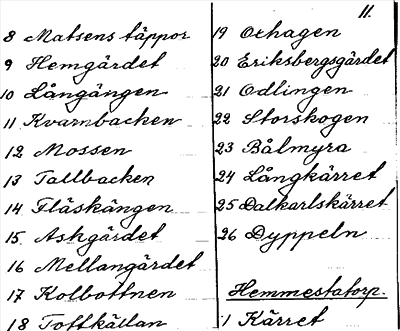 11.
8 Matsens täppor
9 Hemgärdet
10 Långängen
11 Kvarnbacken
12 Mossen
13 Tallbacken
14 Fläskängen
15 Askgärdet
16 Mellangärdet
17 Kolbottnen
18 Tottkällan
19 Oxhagen
20 Eriksbergsgärdet
21 Odlingen
22 Storskogen
23 Bålmyra
24 Långkärret
25 Dalkarlskärret
26 Dyppeln
Hemmestatorp.
1 Kärret